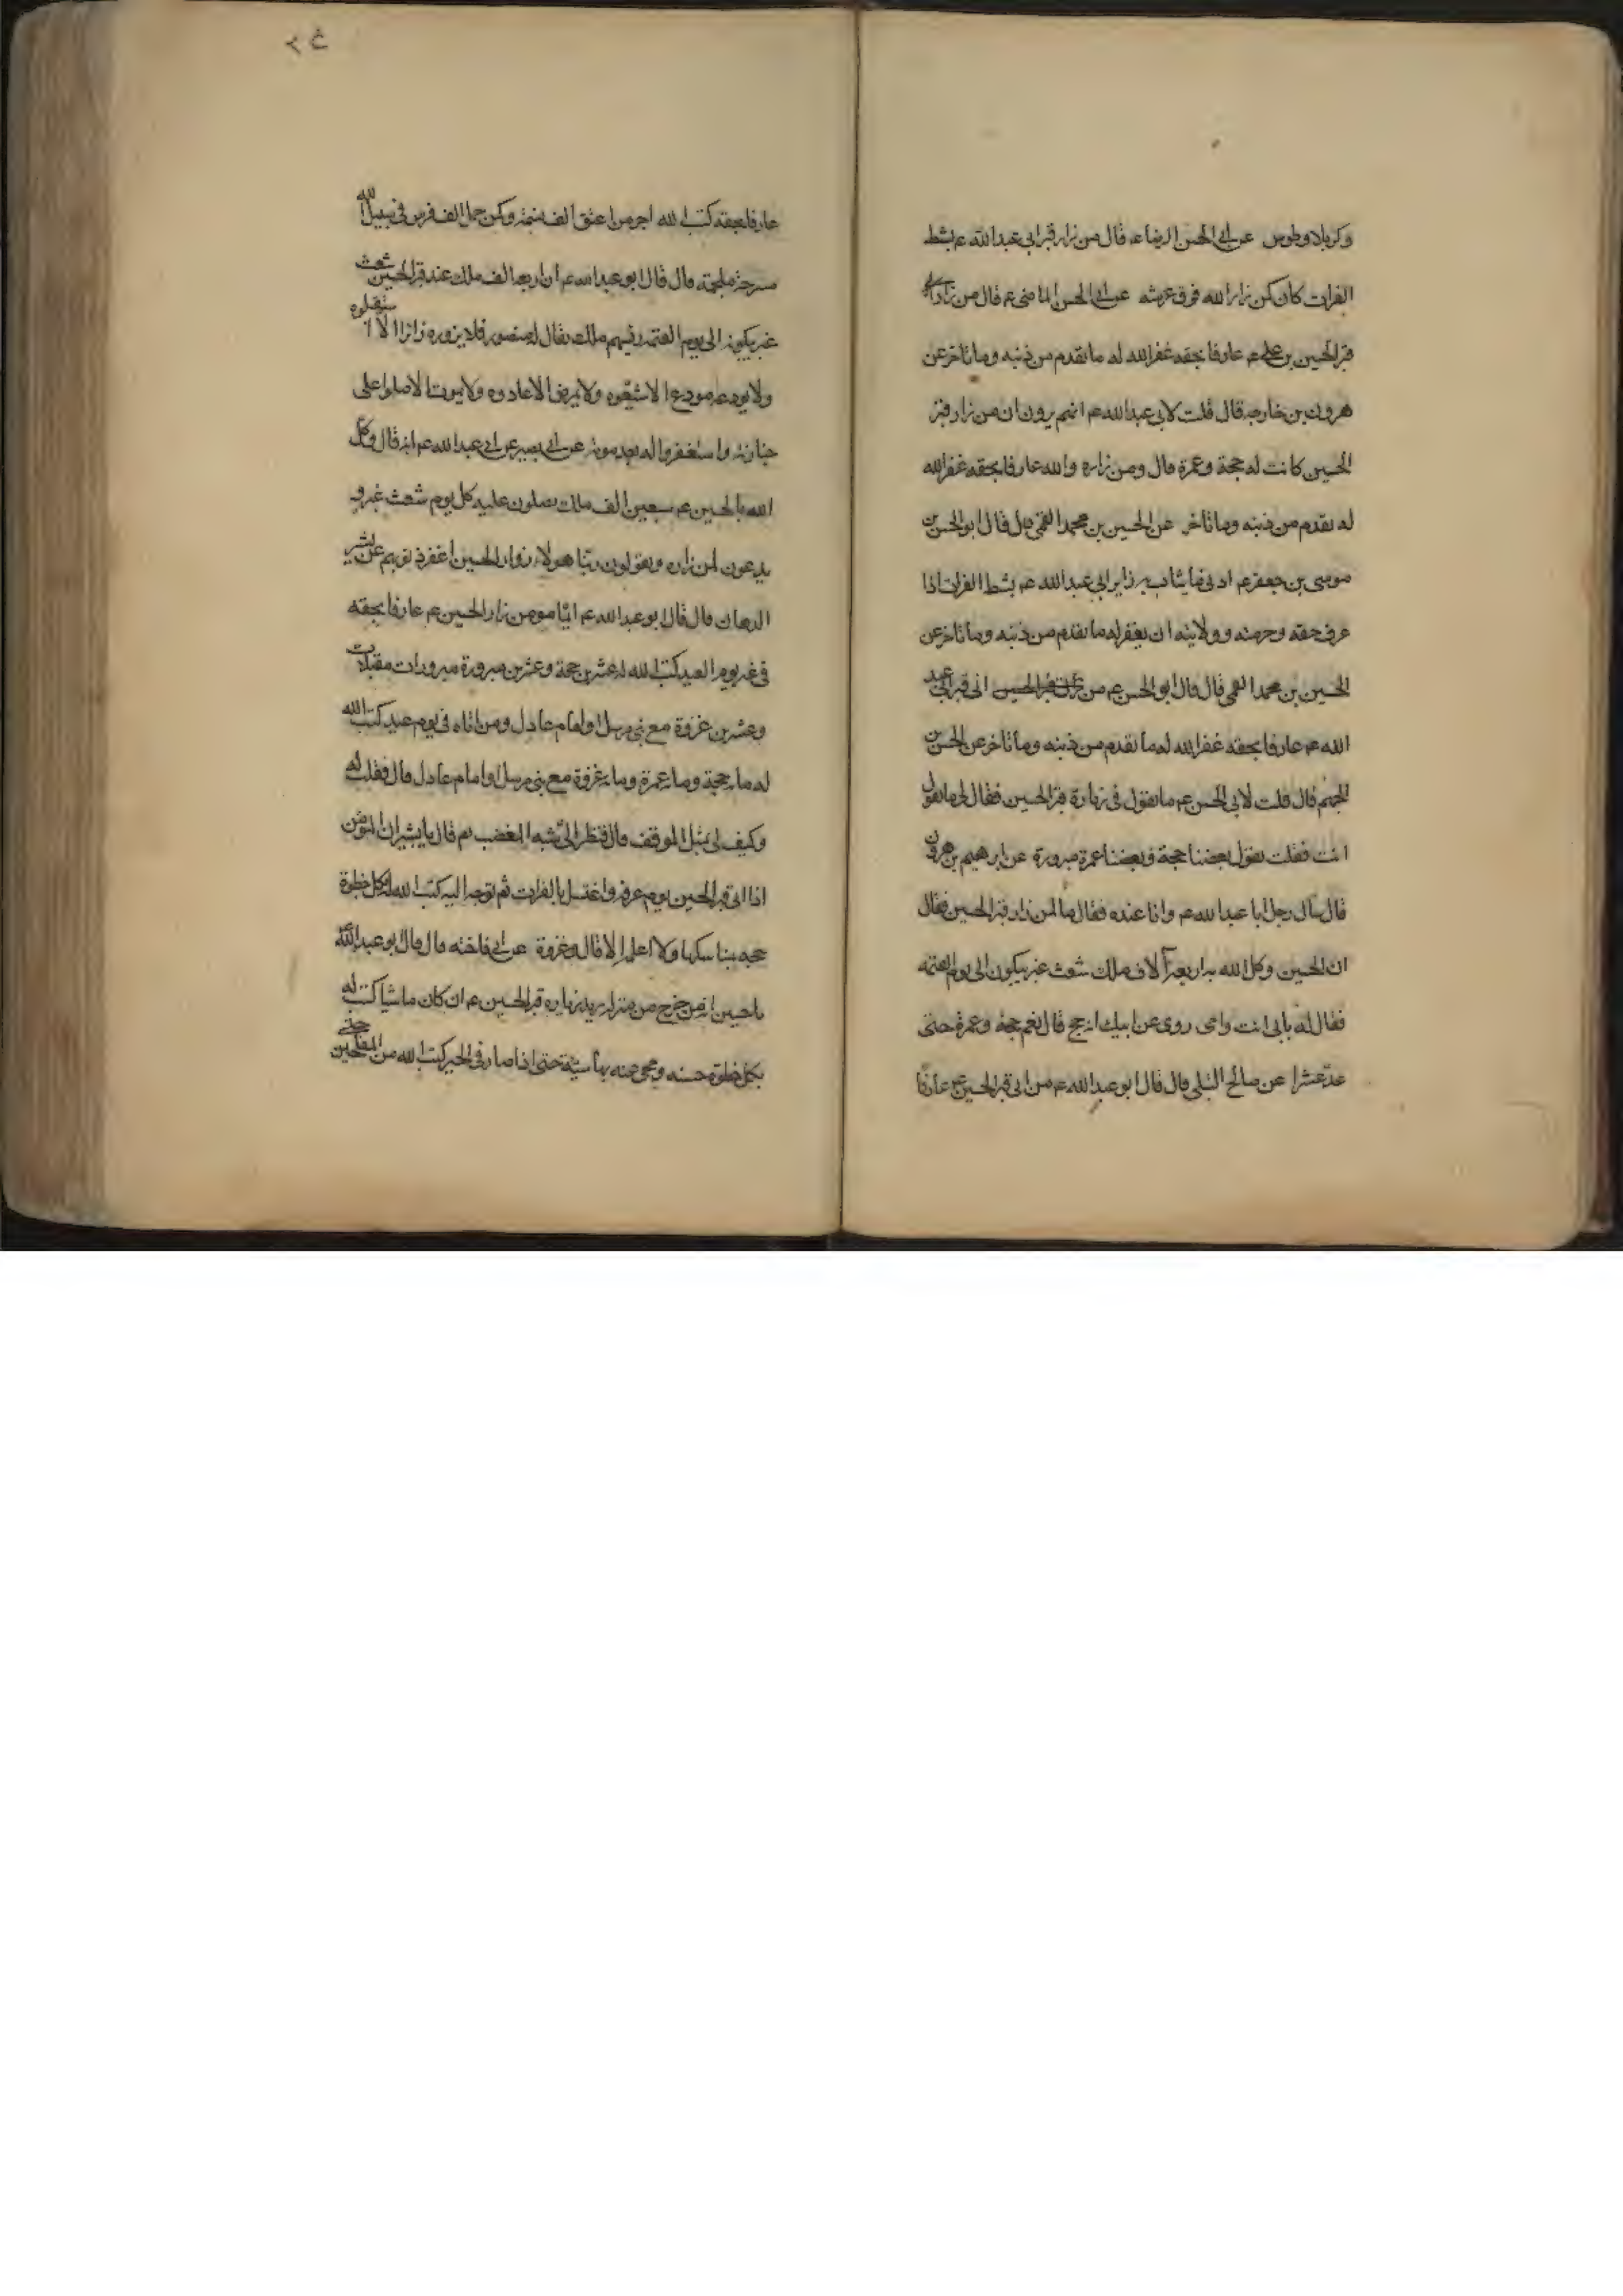 وكربلا وطوس عن ابى الحسن الرضا ء قال من زار قبر ابى عبد الله ء بشط
الفرات كان كمن زار الله فوق عرشه عن ابى الحسن الماضى ء قال من زار
قبر الحسين بن على ء عارفا بحقه غفر الله له ما تقدم من ذنبه وما تاخر عن
هرون بن خارجه قال قلت لابى عبد الله ء انهم يرون ان من زار قبر
الحسين كانت له حجة وعمرة قال ومن زاره والله عارفا بحقه غفر الله
له تقدم من ذنبه وما تاخر عن الحسين بن محمد القمى قال قال ابو الحسن
موسى بن جعفر ء ادنى ما يثاب به زاير ابى عبد الله ء بشط الفرات اذا
عرف حقه وحرمته وولايته ان يغفر له ما تقدم من ذنبه وما تاخر عن
الحسين بن محمد القمى قال قال ابو الحسن ء من اتى قبر ابى عبد
الله ء عارفا بحقه غفر الله له ما تقدم من ذنبه وما تاخر عن الحسن بن
الجهم قال قلت لابى الحسن ء ما تقول فى زيارة قبر الحسين فقال لى ما تقول
انت فقلت يقول بعضنا حجة وبعضنا عمرة مبرورة عن ابرهيم بن هرون
قال سال رجل ابا عبد الله ء وانا عنده فقال ما لمن زار قبر الحسين فقال
ان الحسين وكل الله به اربعة آلاف ملك شعث غبر يبكون الى يوم القيمه
فقال له بابى انت وامى روى عن ابيك انه حج قال نعم حجة وعمرة حتى
عد عشرا عن صالح النيلى قال قال ابو عبد الله ء من اتى قبر الحسين ء عارفا
ع ٢
عارفا بحقه كتب الله اجر من اعتق الف نسمة وكمن حمل الف فرس فى سبيل الله
مسرجة ملجمة قال قال ابو عبد الله ء ان اربعة الف ملك عند قبر الحسين شعث
غبر يبكونه الى يوم القيمة رئيسهم ملك يقال له منصور فلا يزوره زائر الا استقبلوه
ولا يودعه مودع الا شيّعوه ولا يمرض الا عادوه ولا يموت الا صلوا على
جنازته واستغفروا له بعد موته عن ابى بصير عن ابى عبد الله ء انه قال وكل
الله بالحسين ء سبعين الف ملك يصلون عليه كل يوم شعث غبر و
يدعون لمن زاره ويقولون ربنا هولاء زوار الحسين اغفر ذنوبهم عن بشير
الدهان قال قال ابو عبد الله ء ايّما مومن زار الحسين ء عارفا بحقه
فى غير يوم العيد كتب الله له عشرين حجة وعشرين مبرورة مبرورات مقبلات
وعشرين غزوة مع نبى مرسل او امام عادل ومن اتاه فى يوم عيد كتب الله
له مايه حجة ومايه عمرة ومايه غزوة مع نبى مرسل او امام عادل قال فقلت له
وكيف لى بمثل الموقف قال فنظر الىّ شبه المغضب ثم قال يا بشير ان المؤمن
اذا اتى قبر الحسين يوم عرفة واغتسل بالفرات ثم توجه اليه كتب الله له بكل خطوة
حجه بمناسكها ولا اعلم الا قال وغزوة عن ابى فاخته قال قال ابو عبد الله
يا حسين انه من خرج من منزله يريد زياره قبر الحسين ء ان كان ماشيا كتب له
بكل خطوة حسنه ومحى عنه بها سيئة حتى اذا صار فى الحير كتب الله من المفلحين حتى